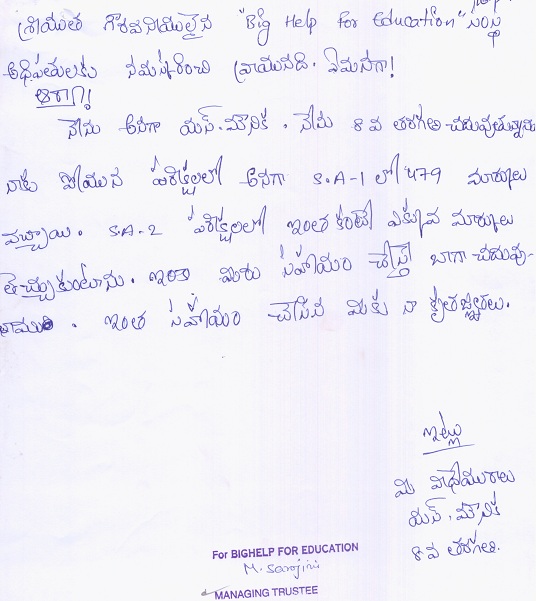 శ్రీయుత గౌరవనీయులైన "Big Help For Education" సంస్థ
అధిపతులకు నమస్కరించి వ్రాయునది. ఏమనగా!
అయ్యా!
నేను అనగా యస్. మౌనిక. నేను 8 వ తరగతి చదువుతున్నాను
నాకు పోయిన పరీక్షలలో అనగా S.A-1 లో 479 మార్కులు
వచ్చాయి. S.A-2 పరీక్షలలో ఇంత కంటే ఎక్కువ మార్కులు
తెచ్చుకుంటాను. ఇంకా మీరు సహాయం చేస్తే బాగా చదువు-
తాము. ఇంత సహాయం చేసిన మీకు నా కృతజ్ఞతలు.
ఇట్లు
మీ విధేయురాలు
యస్. మౌనిక
8 వ తరగతి.
For BIGHELP FOR EDUCATION
M. Sarojini
MANAGING TRUSTEE